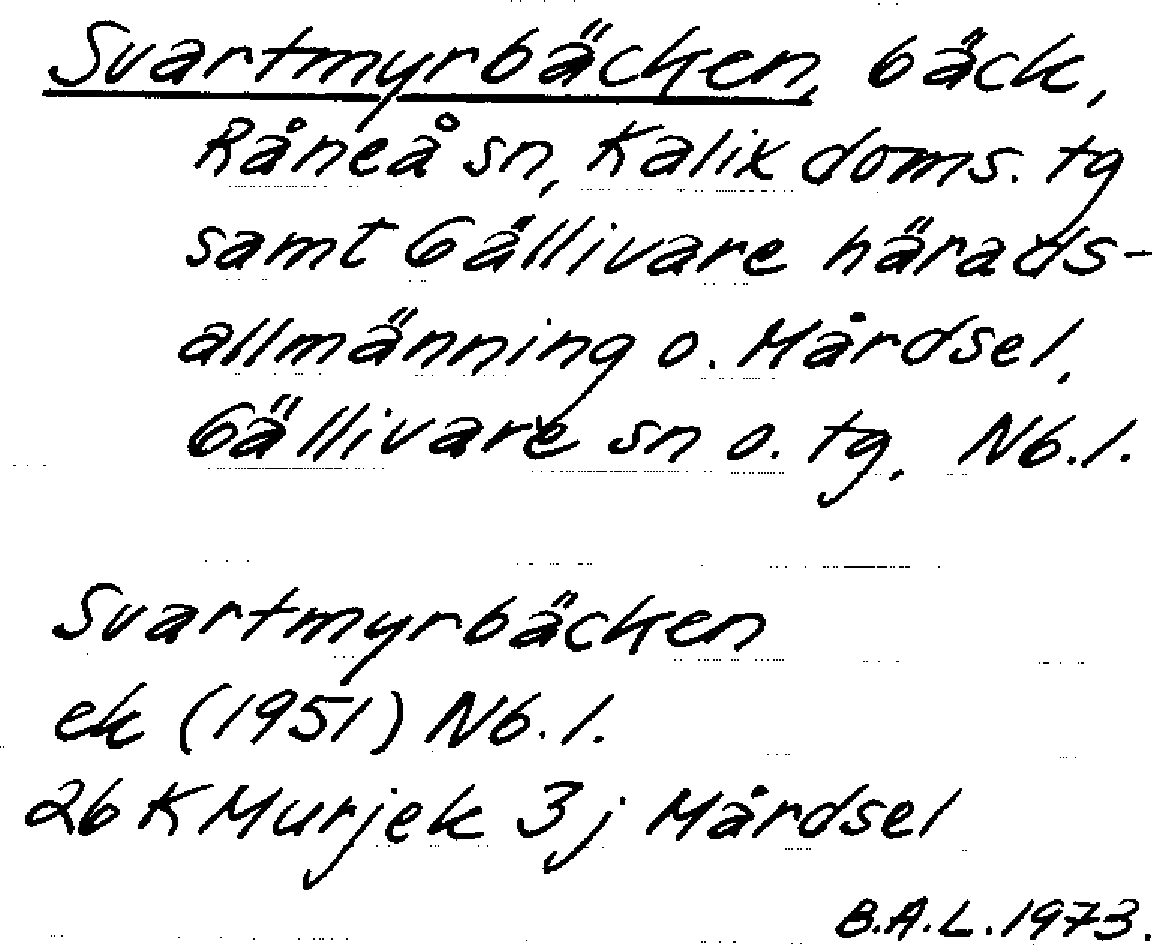 Svartmyrbäcken, bäck,
Råneå sn, Kalix doms. tg
samt Gällivare härads-
allmänning o. Mårdsel,
Gällivare sn o. tg, Nb.l.
Svartmyrbäcken
ek (1951) Nb.l.
26 K Murjek 3j Mårdsel
B.A.L. 1973.